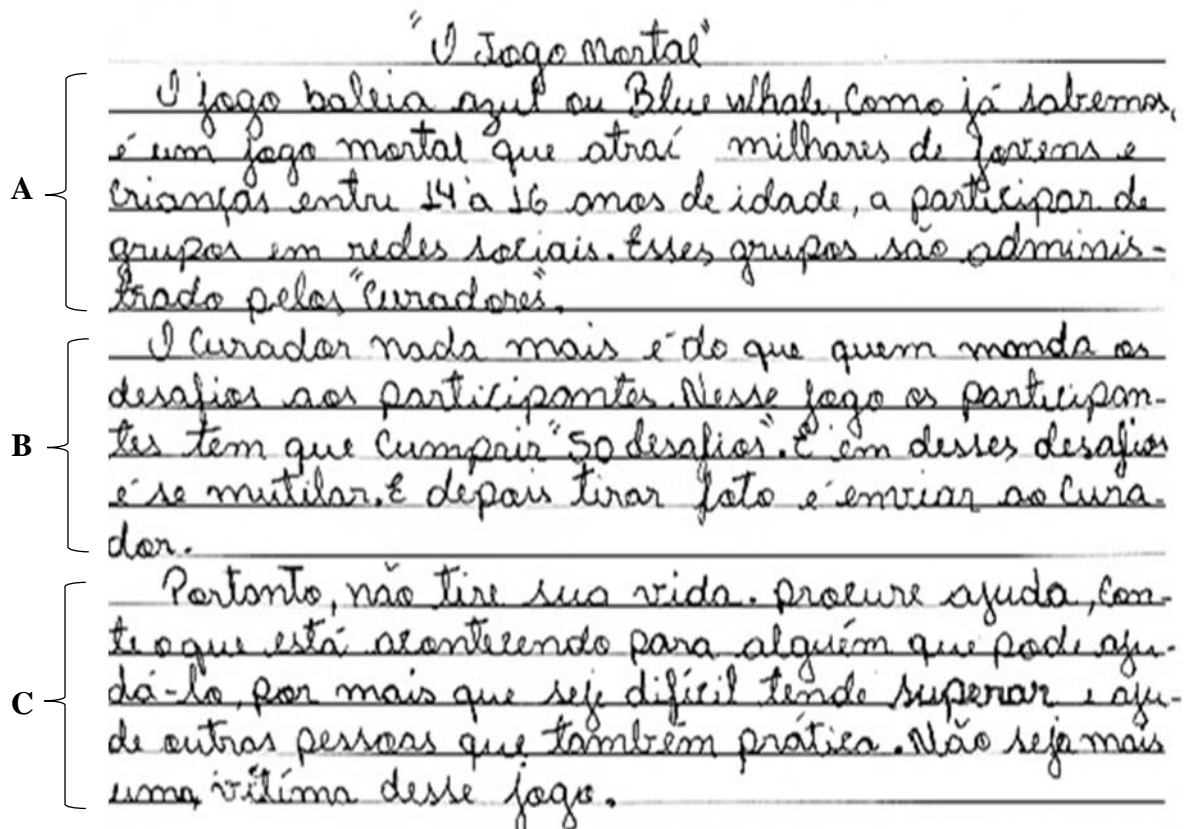 "O Jogo Mortal"
O jogo baleia azul ou Blue Whale, Como já sabemos,
é um jogo mortal que atraí milhares de jovens e
A
crianças entre 14 à 16 anos de idade, a participar de
grupos em redes sociais. Esses grupos são adminis-
trado pelos "Curadores".
O Curador nada mais é do que quem manda os
desafios aos participantes. Nesse jogo os participan-
B
tes tem que Cumprir "50 desafios". E em desses desafios
é se mutilar. E depois tirar foto e enviar ao Cura-
dor.
Portanto, não tire sua vida. procure ajuda, Con-
te oque está acontecendo para alguém que pode aju-
C
dá-lo, por mais que seje difícil tende superar e aju-
de outras pessoas que também prática. Não seja mais
uma vítima desse jogo.